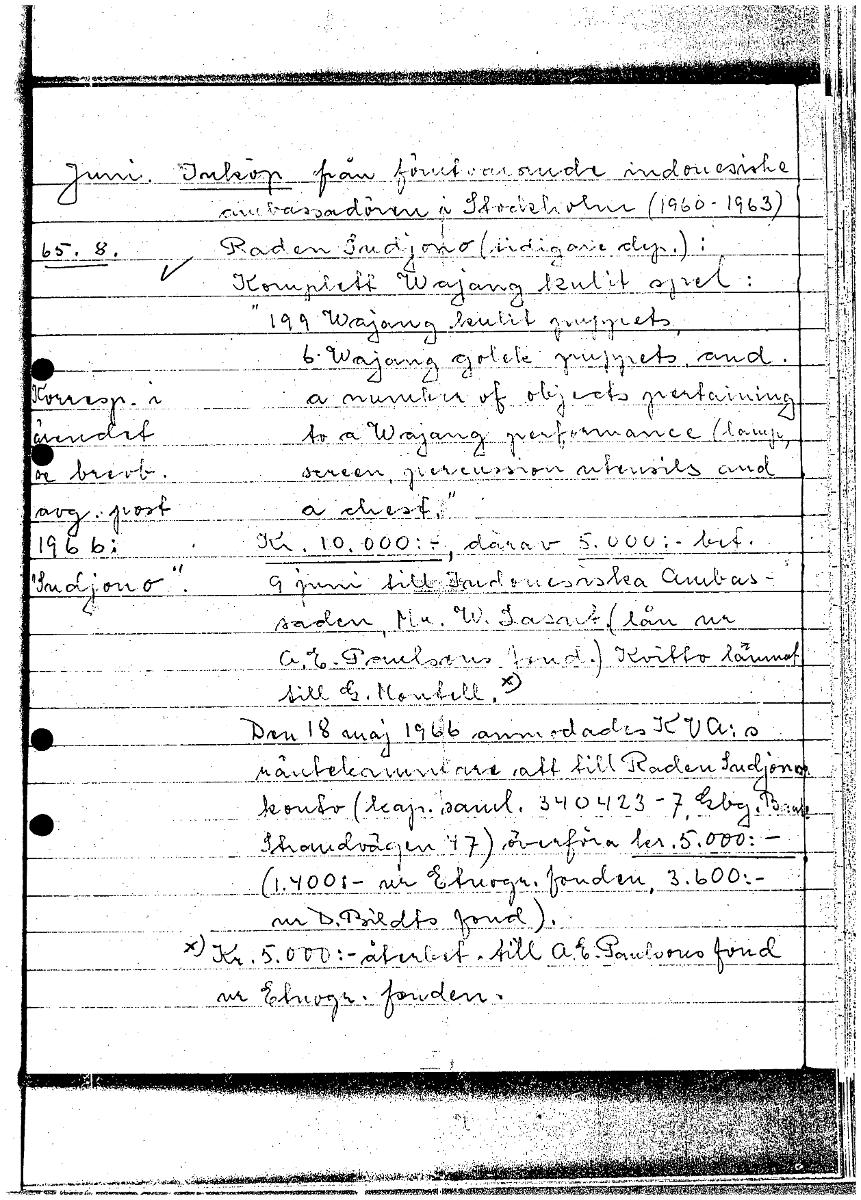 Juni. Inköp från förutvarande indonesiske
ambassadören i Stockholm (1960-1963)
65. 8. ✓ Raden Sudjono (tidigare dep.):
Komplett Wajang kulit spel:
"199 Wajang kulit puppets,
6 Wajang golek puppets, and
a number of objects pertaining
to a Wajang performance (lamp,
screen, percussion utensils and
a chest."
Korresp. i
ärendet
se brevb.
avg. post
1966:
"Sudjono".
Kr. 10.000:-, därav 5.000:- bet.
9 juni till Indonesiska Ambas-
saden, Mr. W. (lån ur
A.E. Paulsons fond.) Kvitto lämnat
till G. Montell. x)
Den 18 maj 1966 anmodades KVA:s
räntekammare att till Raden Sudjonos
konto (kap. saml. 340423-7, Gbg. Bank
Strandvägen 47) överföra kr. 5.000:-
(1.400:- ur Etnogr. fonden, 3.600:-
ur D. Bildts fond).
x) Kr. 5.000:- återbet. till A.E. Paulsons fond
ur Etnogr. fonden.